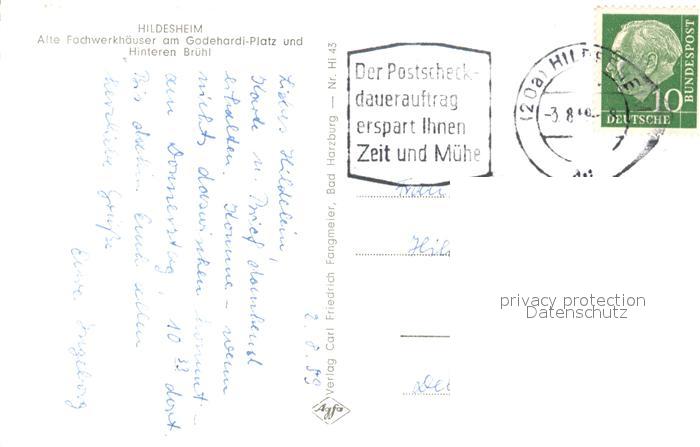 HILDESHEIM
Alte Fachwerkhäuser am Godehardi-Platz und
Hinteren Brühl
2. 8. 59
Liebes Hildelein,
Karte u. Brief dankend
erhalten. Komme – wenn
nichts dazwischen kommt –
am Donnerstag, 10 33 dort.
Bis dahin Euch allen
herzliche Grüße
Eure Ingeborg
Verlag Carl Friedrich Fangmeier, Bad Harzburg — Nr. Hi 43
Der Postscheck-
dauerauftrag
erspart Ihnen
Zeit und Mühe
(20a) HILDESHE
-3.8
10
DEUTSCHE
BUNDESPOST
Frau
Hil
privacy protection
Datenschutz